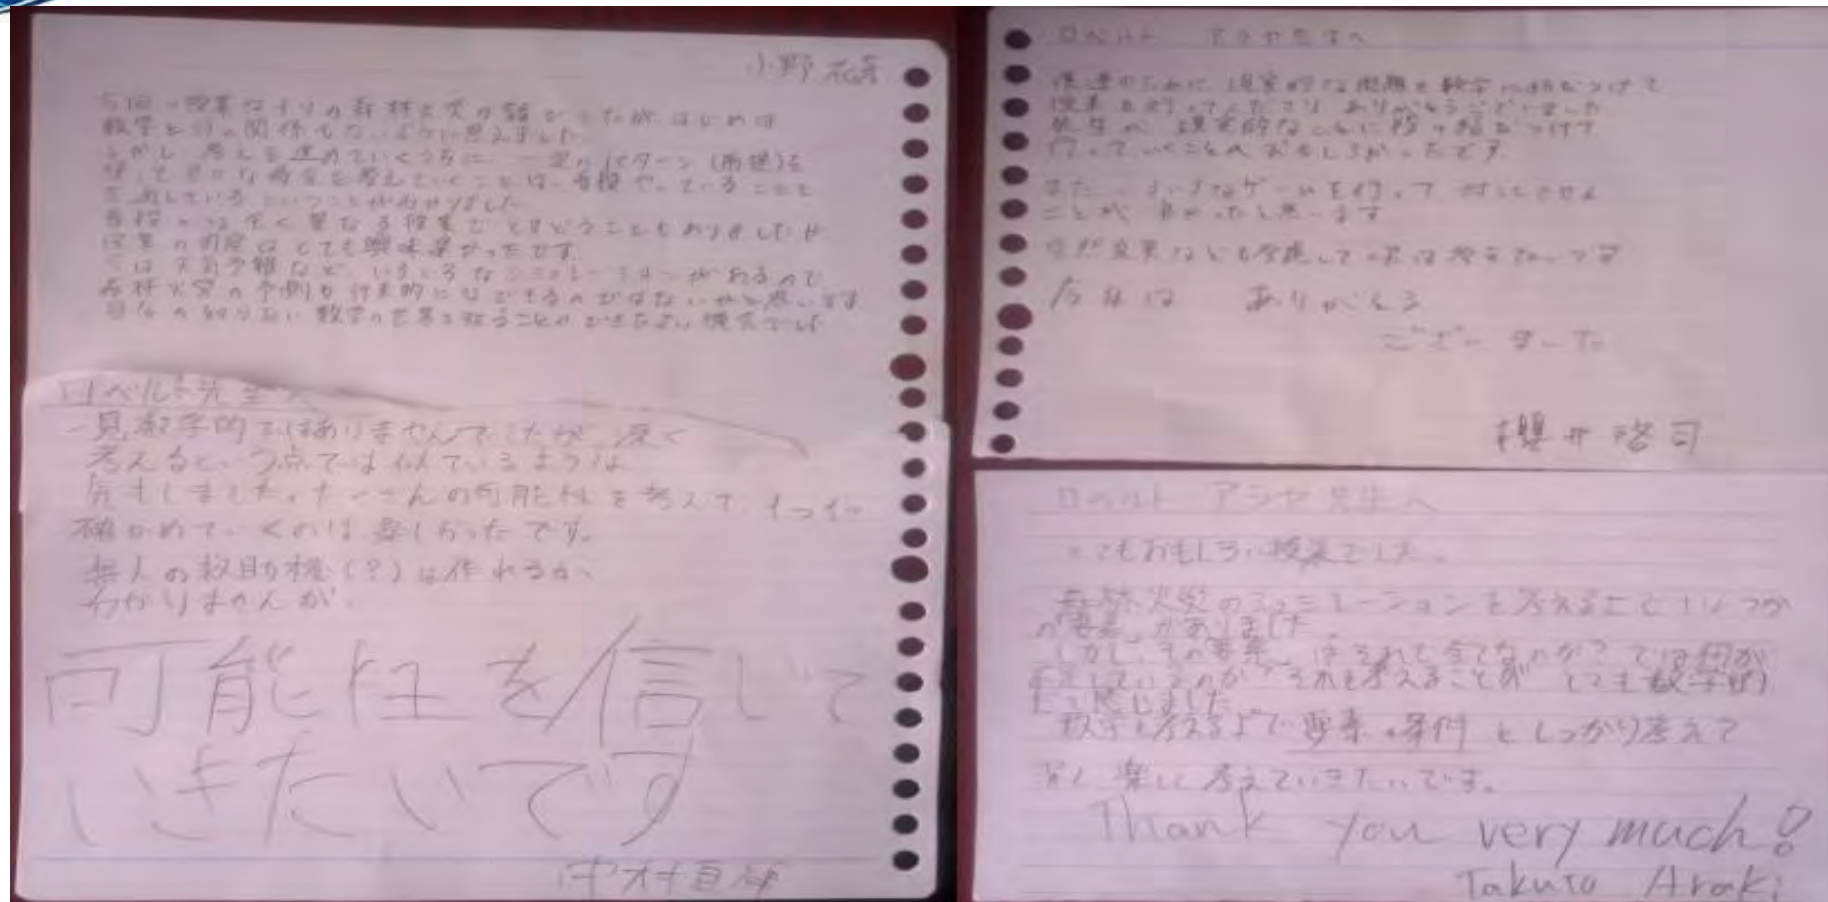 小野
今回の授業はチリの森林火災の話でしたが はじめは
数学と何の関係もないように思えました
しかし 考えを進めていくうちに、一定のパターン(前提)を
使って色々な場合を考えていくことは、普段やっていることと
共通しているということがわかりました
普段とは全く異なる授業で とまどうこともありましたが
授業の内容はとても興味深かったです
今は天気予報など、いろいろなシミュレーションがあるので
森林火災の予測も将来的にはできるのではないかと思います
自分の知らない数学の世界を知ることのできたよい機会でした
ロベルト先生へ
一見数学的ではありませんでしたが 深く
考えるという点では似ているような
気がしました。たくさんの可能性を考えて、1つ1つ
確かめていくのは楽しかったです。
無人の救助機(?)は作れるか、
わかりませんが、
可能性を信じて
いきたいです
中村
ロベルト アラヤ先生へ
僕達のために 現実的な問題を数学に結びつけて
授業を行ってくださり ありがとうございました
先生が 現実的なことに結び
行っていくことが おもしろかったです
また いろいろなゲームを行って
ことが 良かったと思います
自然災害なども考慮して
今日は ありがとう
ございました
櫻井 啓司
ロベルト アラヤ 先生へ
とてもおもしろい授業でした。
森林火災のシュミレーションを考えるときいくつか
の「要素」がありました
しかし、その「要素」はそれで全てなのか? では何が
不足しているのか? それを考えることが とても数学的
だと感じました
数学を考える上で要素・条件 をしっかり考えて
深く 楽しく 考えていきたいです。
Thank you very much!
Takuto Araki